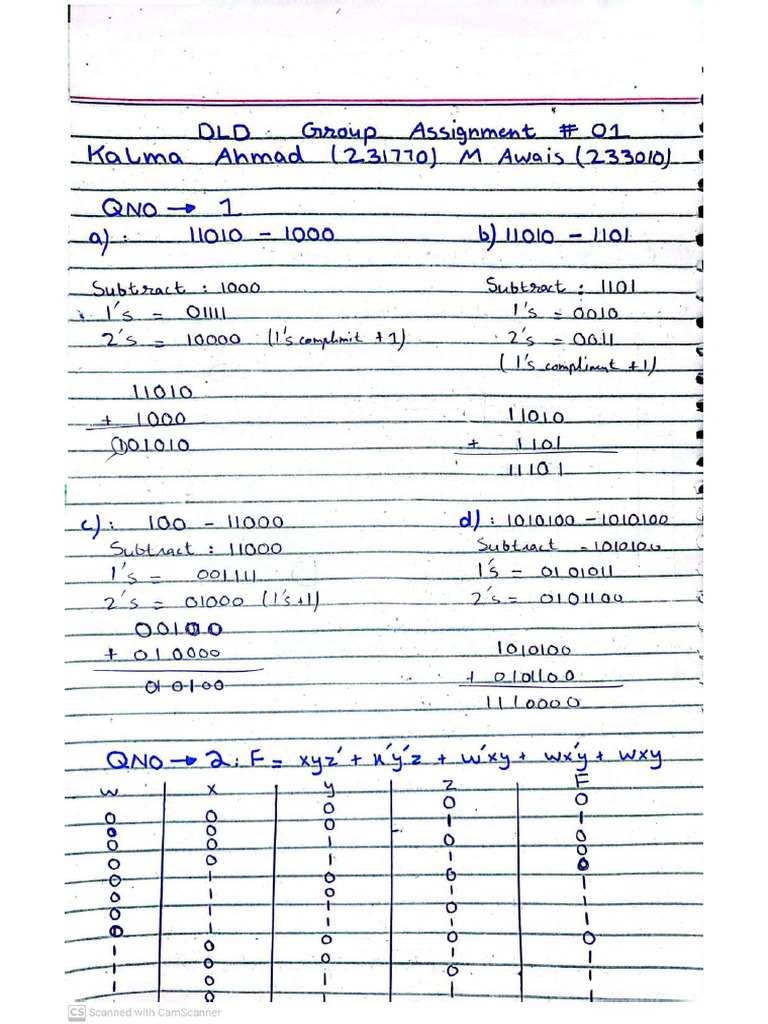 DLD Group Assignment # 01
Kalma Ahmad (231770) M Awais (233010)
QNO → 1
a): 11010 - 1000
b) 11010 - 1101
Subtract : 1000
1's = 01111
2's = 10000 (1's complimit + 1)
11010
+ 1000
1001010
Subtract : 1101
1's = 0010
2's = 0011
(1's compliment +1)
11010
+ 1101
11101
c): 100 - 11000
Subtract : 11000
1's = 001111
2's = 01000 (1's+1)
00100
+ 010000
010100
d): 1010100 - 1010100
Subtract - 1010100
1's = 0101011
2's = 0101100
1010100
+ 0101100
1110000
QNO → 2: F = xyz' + x'y'z + w'xy + wx'y + wxy
w x y z F
0 0 0 0 0
0 0 0 1 1
0 0 1 0 0
0 0 1 1 0
0 1 0 0 0
0 1 0 1 1
0 1 1 0 1
0 1 1 1 1
1 0 0 0 0
1 0 0 1 1
1 0 1 0 1
1 0 1 1 1
CS Scanned with CamScanner